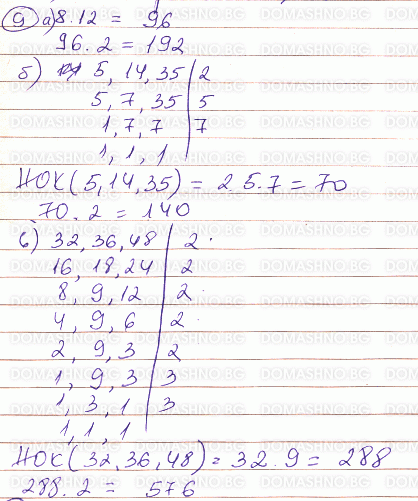 9 а) 8.12 = 96
96.2 = 192
б) 5, 14, 35 | 2
5, 7, 35 | 5
1, 7, 7 | 7
1, 1, 1
НОК(5,14,35) = 2.5.7 = 70
70.2 = 140
в) 32, 36, 48 | 2
16, 18, 24 | 2
8, 9, 12 | 2
4, 9, 6 | 2
2, 9, 3 | 2
1, 9, 3 | 3
1, 3, 1 | 3
1, 1, 1
НОК(32,36,48) = 32.9 = 288
288.2 = 576
DOMASHNO.BG